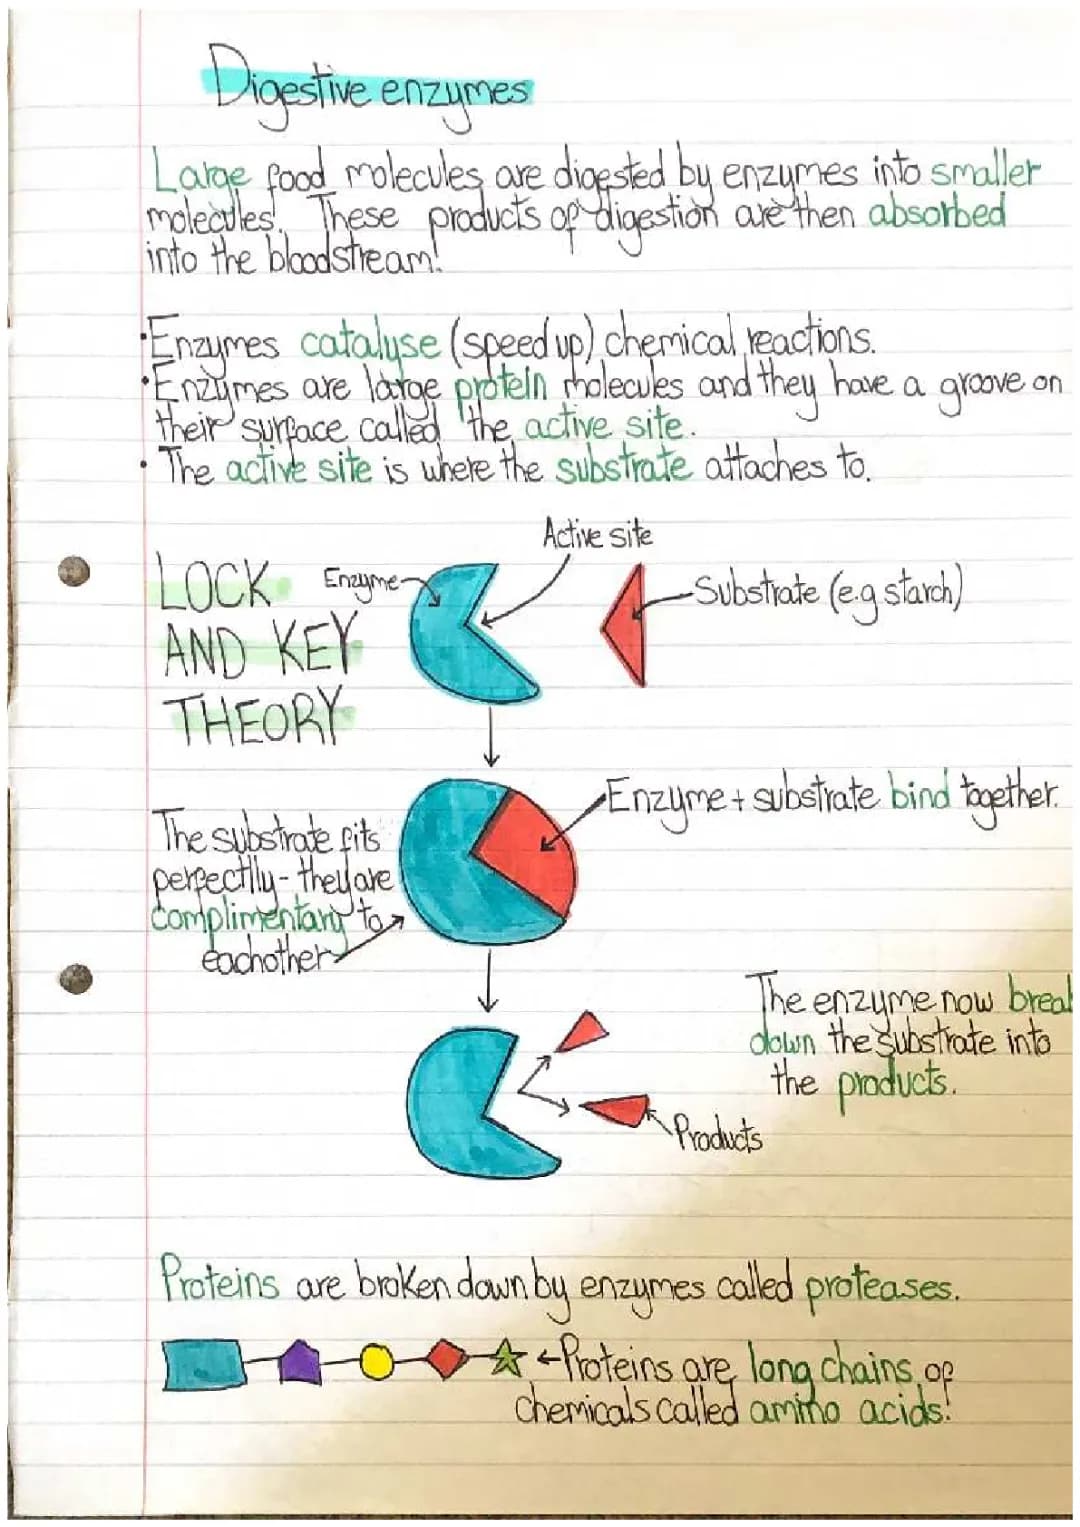 Digestive enzymes
Large food molecules are digested by enzymes into smaller
molecules! These products of digestion are then absorbed
into the bloodstream!
• Enzymes catalyse (speed up) chemical reactions.
• Enzymes are large protein molecules and they have a groove on
their surface called the active site.
• The active site is where the substrate attaches to.
LOCK
AND KEY
THEORY
Enzyme
Active site
Substrate (e.g starch)
Enzyme + substrate bind together.
The substrate fits
perfectlly - they are
complimentary to
eachother
The enzyme now break
down the substrate into
the products.
Products
Proteins are broken down by enzymes called proteases.
←Proteins are long chains of
chemicals called amino acids!